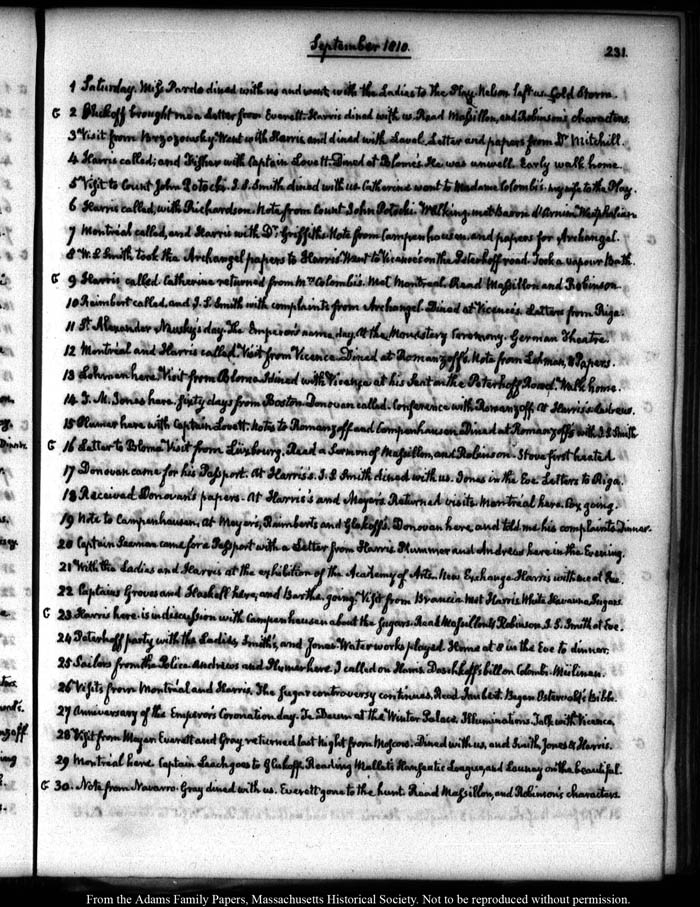 September 1810.
231.
1 Saturday. Miss Pardo dined with us and went with the Ladies to the Play. Nelson left us. Cold Storm.
G 2 brought me a Letter from Everett. Harris dined with us. Read Maßillon, and Robinson's characters.
3 Visit from Brzozowsky. Went with Harris and dined with Laval. Letter and papers from Dr. Mitchill.
4 Harris called; and Fisher with Captain Lovett. Dined at Blome's. He was unwell. Early walk home.
5 Visit to Count John Potocki. J. S. Smith dined with us. Catherine went to Madame Colombi's. my wife to the Play.
6 Harris called, with Richardson. Note from Count John Potocki. Walking, met Baron d'Arnim. Westphalian
7 Montréal called, and Harris with Dr. Griffiths. Note from Campenhausen and papers for Archangel.
8 W. S. Smith took the Archangel papers to Harris. Went to Vicence's on the Peterhoff road. Took a vapour Bath.
G 9 Harris called. Catherine returned from Mrs. Colombi's. Met Montreal. Read Maßillon and Robinson.
10 Raimbert called, and J. S. Smith with complaints from Archangel. Dined at Vicence's. Letters from Riga.
11 St. Alexander Newsky's day. The Emperor's name day. At the Monastery Ceremony. German Theatre.
12 Montréal and Harris called. Visit from Vicence. Dined at Romanzoff's. Note from Lehman, & Papers.
13 Lohrman here. Visit from Blome. I dined with Vicence at his Seat on the Peterhoff Road. Walk home.
14 T. M. Jones here. fifty days from Boston. Donovan called. Conference with Romanzoff. At Harris's. Andrews.
15 Plumer here with Captain Lovett. Notes to Romanzoff and Campenhausen. Dined at Romanzoff's with J. S. Smith
G 16 Letter to Blome. Visit from Luxbourg. Read a Sermon of Maßillon, and Robinson. Stove first heated
17 Donovan came for his Paßport. At Harris's. J. S. Smith dined with us. Jones in the Eve. Letters to Riga.
18 Received Donovan's papers. At Harris's and Meyer's. Returned visits. Montréal here. Cox going.
19 Note to Campenhausen. At Meyer's, Raimbert's and Glukoff's. Donovan here, and told me his complaints.
20 Captain Seeman came for a Paßport with a Letter from Harris. Plummer and Andrews here in the Evening.
21 With the Ladies and Harris at the exhibition of the Academy of Arts. New Exchange. Harris with me at Eve.
22 Captains Groves and Haskell here, and Barthe. going. Visit from Brancia. Met Harris. White Havanna Sugars.
G 23 Harris here. is in discußion with Campenhausen about the Sugars. Read Maßillon & Robinson. J. S. Smith at Eve.
24 Peterhoff party with the Ladies, Smith's, and Jones. Water works played. Home at 8 in the Eve to dinner.
25 Sailors from the Police. Andrews and Plymer here. I called on Harris. Daschkoff's bill on Colombi.
26 Visits from Montréal and Harris. The Sugar controversy continues. Read Imbert. Began Osterwald's Bible.
27 Anniversary of the Emperor's Coronation day. Te Deum at the Winter Palace. Illuminations. Talk with Vicence.
28 Visit from Meyer. Everett and Gray returned last Night from Moscow. Dined with us, and Smith Jones & Harris.
29 Montréal here. Captain Leach goes to Glukoff. Reading Mallet's Hanseatic League, and Launay on the beautiful.
G 30. Note from Navarro. Gray dined with us. Everett gone to the hunt. Read Maßillon, and Robinson's characters.
From the Adams Family Papers, Massachusetts Historical Society. Not to be reproduced without permission.